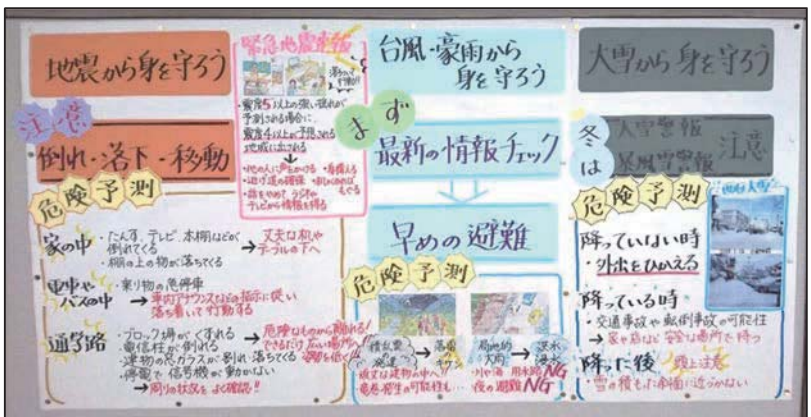 地震から身を守ろう
注意
倒れ・落下・移動
危険予測
家の中
・たんす、テレビ、本棚などが
倒れてくる
・棚の上の物が落ちてくる
→丈夫な机や
テーブルの下へ
電車や
バスの中
・乗り物の急停車
→車内アナウンスなどの指示に従い
落ち着いて行動する
通学路
・ブロック塀がくずれる
・電信柱が倒れる
・建物の窓ガラスが割れ落ちてくる
・停電で信号機が動かない
→危険なものから離れる!
できるだけ広い場所へ
姿勢を低く
→周りの状況をよく確認!!
緊急地震速報
・震度5以上の強い揺れが
予測される場合に、
震度4以上が予想される
地域に出される
・他の人に声をかける
・身構える
・逃げ道の確保
もぐる
・話をやめて ラジオや
テレビから情報を得る
台風・豪雨から
身を守ろう
まず
最新の情報チェック
早めの避難
危険予測
積乱雲
発達
→落雷
頑丈な建物の中へ!!
竜巻発生の可能性も…
局地的
大雨
→洪水
浸水
・川や海 用水路NG
・夜の避難NG
大雪から身を守ろう
冬は
大雪警報
暴風雪警報
注意
危険予測
大雪
降っていない時
・外出をひかえる
降っている時
・交通事故や転倒事故の可能性
→家や店など安全な場所で待つ
降った後
頭上注意
・雪の積もった斜面に近づかない